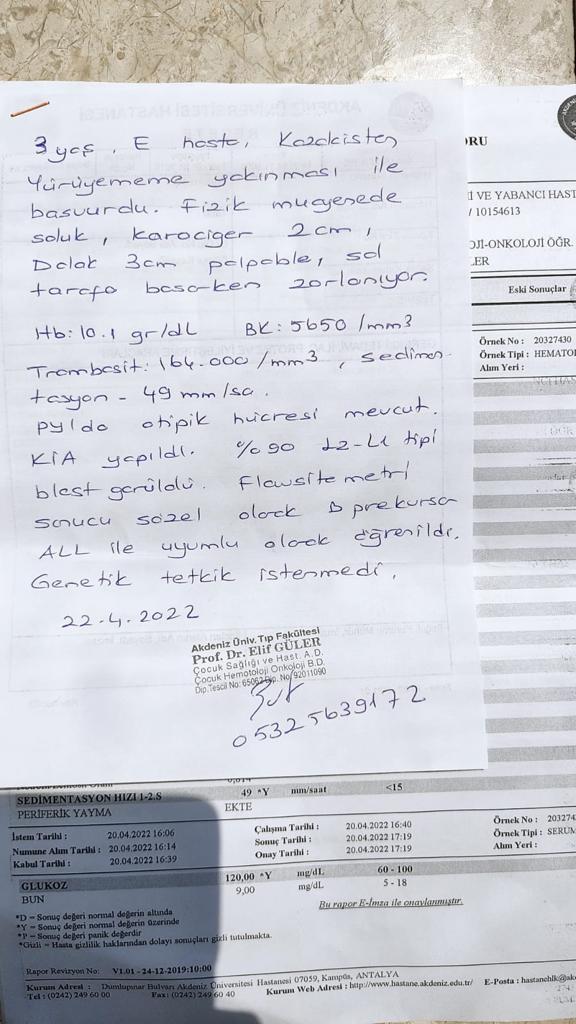 3 yaş, E hasta, Kazakistan
Yürüyememe yakınması ile
başvurdu. Fizik muayenede
soluk, karaciğer 2cm,
Dalak 3cm palpable, sol
tarafa basarken zorlanıyor.
Hb: 10.1 gr/dL BK: 5650 /mm3
Trombosit: 164.000 /mm3, sedimen-
tasyon - 49 mm/sa.
PY'da atipik hücresi mevcut.
KİA yapıldı. %90 L2-L1 tipi
blast görüldü. Flowsitemetri
sonucu sözel olarak B prekürsör
ALL ile uyumlu olarak öğrenildi.
Genetik tetkik istenmedi.
22.4.2022
Akdeniz Üniv. Tıp Fakültesi
Prof. Dr. Elif GÜLER
Çocuk Sağlığı ve Hast. A.D.
Çocuk Hematoloji Onkoloji B.D.
Dip.Tescil No: 65062 Dip. No: 92011090
05325639172
ORU
I VE YABANCI HAST
/ 10154613
OJİ-ONKOLOJİ ÖĞR.
LER
Eski Sonuçlar
Örnek No : 20327430
Örnek Tipi : HEMATO
Alım Yeri :
SEDİMENTASYON HIZI 1-2.S 49 *Y mm/saat <15
PERİFERİK YAYMA EKTE
İstem Tarihi : 20.04.2022 16:06 Çalışma Tarihi : 20.04.2022 16:40 Örnek No : 203274
Numune Alım Tarihi : 20.04.2022 16:14 Sonuç Tarihi : 20.04.2022 17:19 Örnek Tipi : SERUM
Kabul Tarihi : 20.04.2022 16:39 Onay Tarihi : 20.04.2022 17:19 Alım Yeri :
GLUKOZ 120,00 *Y mg/dL 60 - 100
BUN 9,00 mg/dL 5 - 18
*D = Sonuç değeri normal değerin altında
*Y = Sonuç değeri normal değerin üzerinde
*P = Sonuç değeri panik değerdir
*Gizli = Hasta gizlilik haklarından dolayı sonuçları gizli tutulmakta.
Bu rapor E-İmza ile onaylanmıştır.
Rapor Revizyon No: V1.01 - 24-12-2019:10:00
Kurum Adresi : Dumlupınar Bulvarı Akdeniz Üniversitesi Hastanesi 07059, Kampüs, ANTALYA
Tel : (0242) 249 60 00 Fax: (0242) 249 60 40 Kurum Web Adresi : http://www.hastane.akdeniz.edu.tr/ E-Posta : hastanehlk@ak